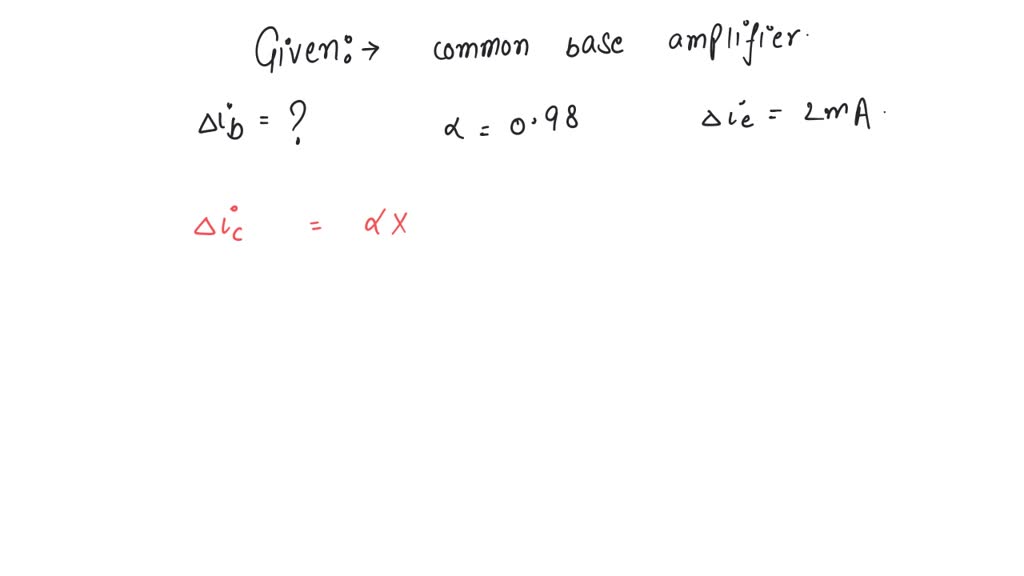 Given:→ common base amplifier.
Δib = ? α = 0.98 Δie = 2mA.
Δic = αX